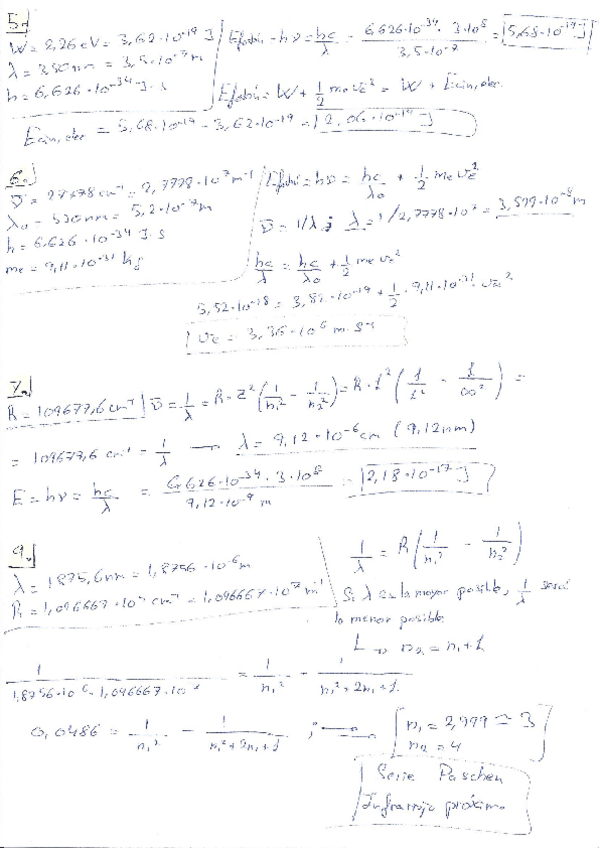 5.)
W = 2,26 eV = 3,62·10⁻¹⁹ J
λ = 350 nm = 3,5·10⁻⁷ m
h = 6,626·10⁻³⁴ J·s
Efotón = hν = hc/λ = 6,626·10⁻³⁴ · 3·10⁸ / 3,5·10⁻⁷ = 5,68·10⁻¹⁹ J
Efotón = W + 1/2 me ve² = W + Ecin, elec
Ecin, elec = 5,68·10⁻¹⁹ - 3,62·10⁻¹⁹ = 2,06·10⁻¹⁹ J
6.)
ν̄ = 27778 cm⁻¹ = 2,7778·10⁷ m⁻¹
λ₀ = 520 nm = 5,2·10⁻⁷ m
h = 6,626·10⁻³⁴ J·s
me = 9,11·10⁻³¹ kg
Efotón = hν = hc/λ₀ + 1/2 me ve²
ν̄ = 1/λ ; λ = 1/2,7778·10⁷ = 3,599·10⁻⁸ m
hc/λ = hc/λ₀ + 1/2 me ve²
5,52·10⁻¹⁸ = 3,82·10⁻¹⁹ + 1/2 · 9,11·10⁻³¹ · ve²
ve = 3,36·10⁶ m·s⁻¹
7.)
R = 109677,6 cm⁻¹
ν̄ = 1/λ = R·Z² (1/n₁² - 1/n₂²) = R·1² (1/1² - 1/∞²) =
= 109677,6 cm⁻¹ = 1/λ → λ = 9,12·10⁻⁶ cm (9,12 nm)
E = hν = hc/λ = 6,626·10⁻³⁴ · 3·10⁸ / 9,12·10⁻⁹ m = 2,18·10⁻¹⁷ J
9.)
λ = 1875,6 nm = 1,8756·10⁻⁶ m
R = 1,096667·10⁵ cm⁻¹ = 1,096667·10⁷ m⁻¹
1/λ = R (1/n₁² - 1/n₂²)
Si λ es la mayor posible, 1/λ será
la menor posible
↳ n₂ = n₁ + 1
1 / 1,8756·10⁻⁶ · 1,096667·10⁷ = 1/n₁² - 1/n₁² + 2n₁ + 1
0,0486 = 1/n₁² - 1/n₁² + 2n₁ + 1 ; → n₁ = 2,999 ≃ 3
n₂ = 4
Serie Paschen
Infrarrojo próximo